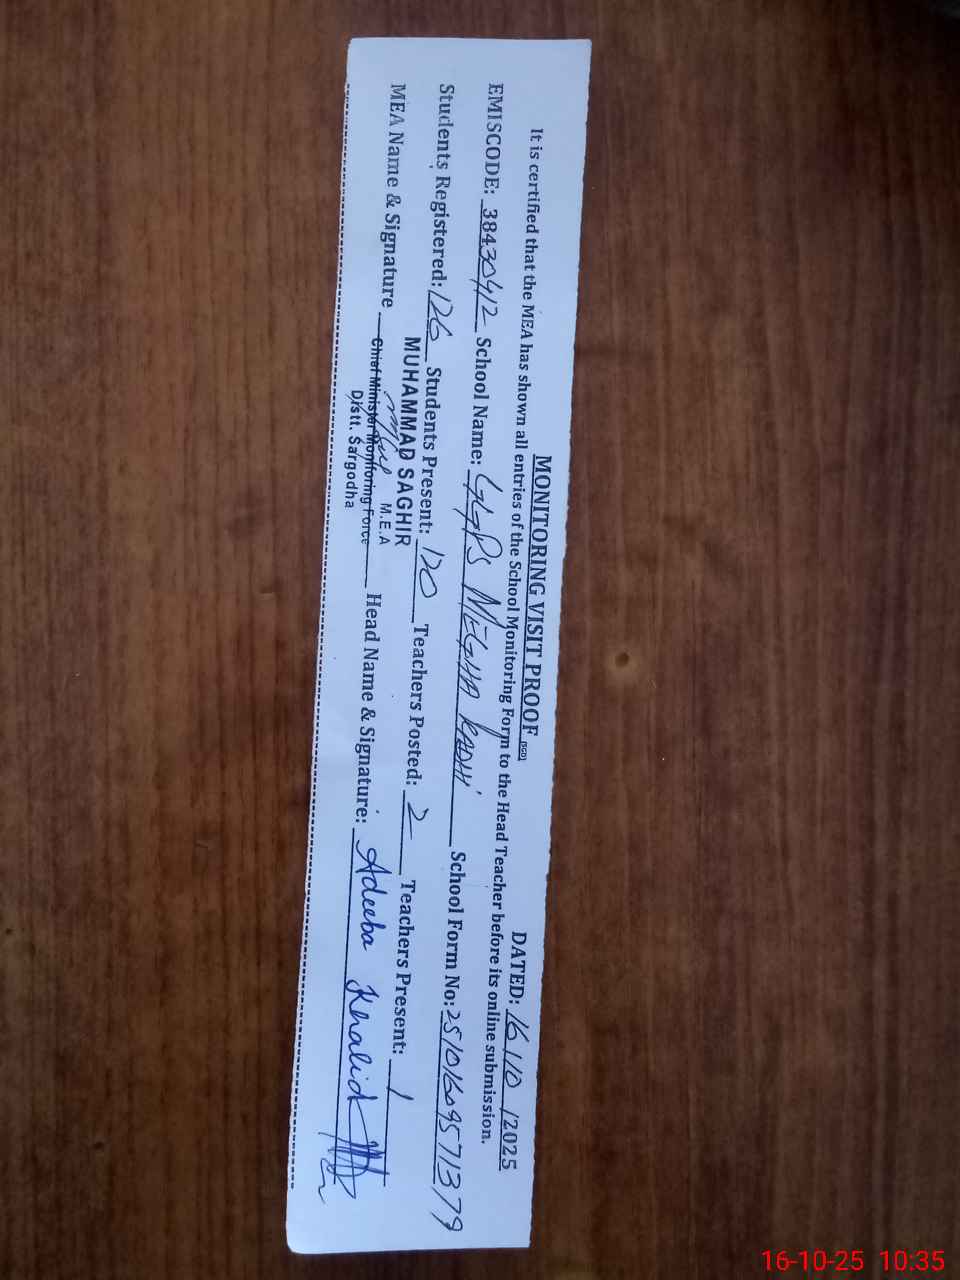 MONITORING VISIT PROOF (SGD) DATED: 16/10/2025
It is certified that the MEA has shown all entries of the School Monitoring Form to the Head Teacher before its online submission.
EMISCODE: 38430412 School Name: GGPS MEGHA KADHI School Form No: 251016095711379
Students Registered: 126 Students Present: 120 Teachers Posted: 2 Teachers Present: 1
MUHAMMAD SAGHIR
M.E.A
MEA Name & Signature Chief Minister Monitoring Force Head Name & Signature: Adeeba Khalid
Distt. Sargodha
16-10-25 10:35